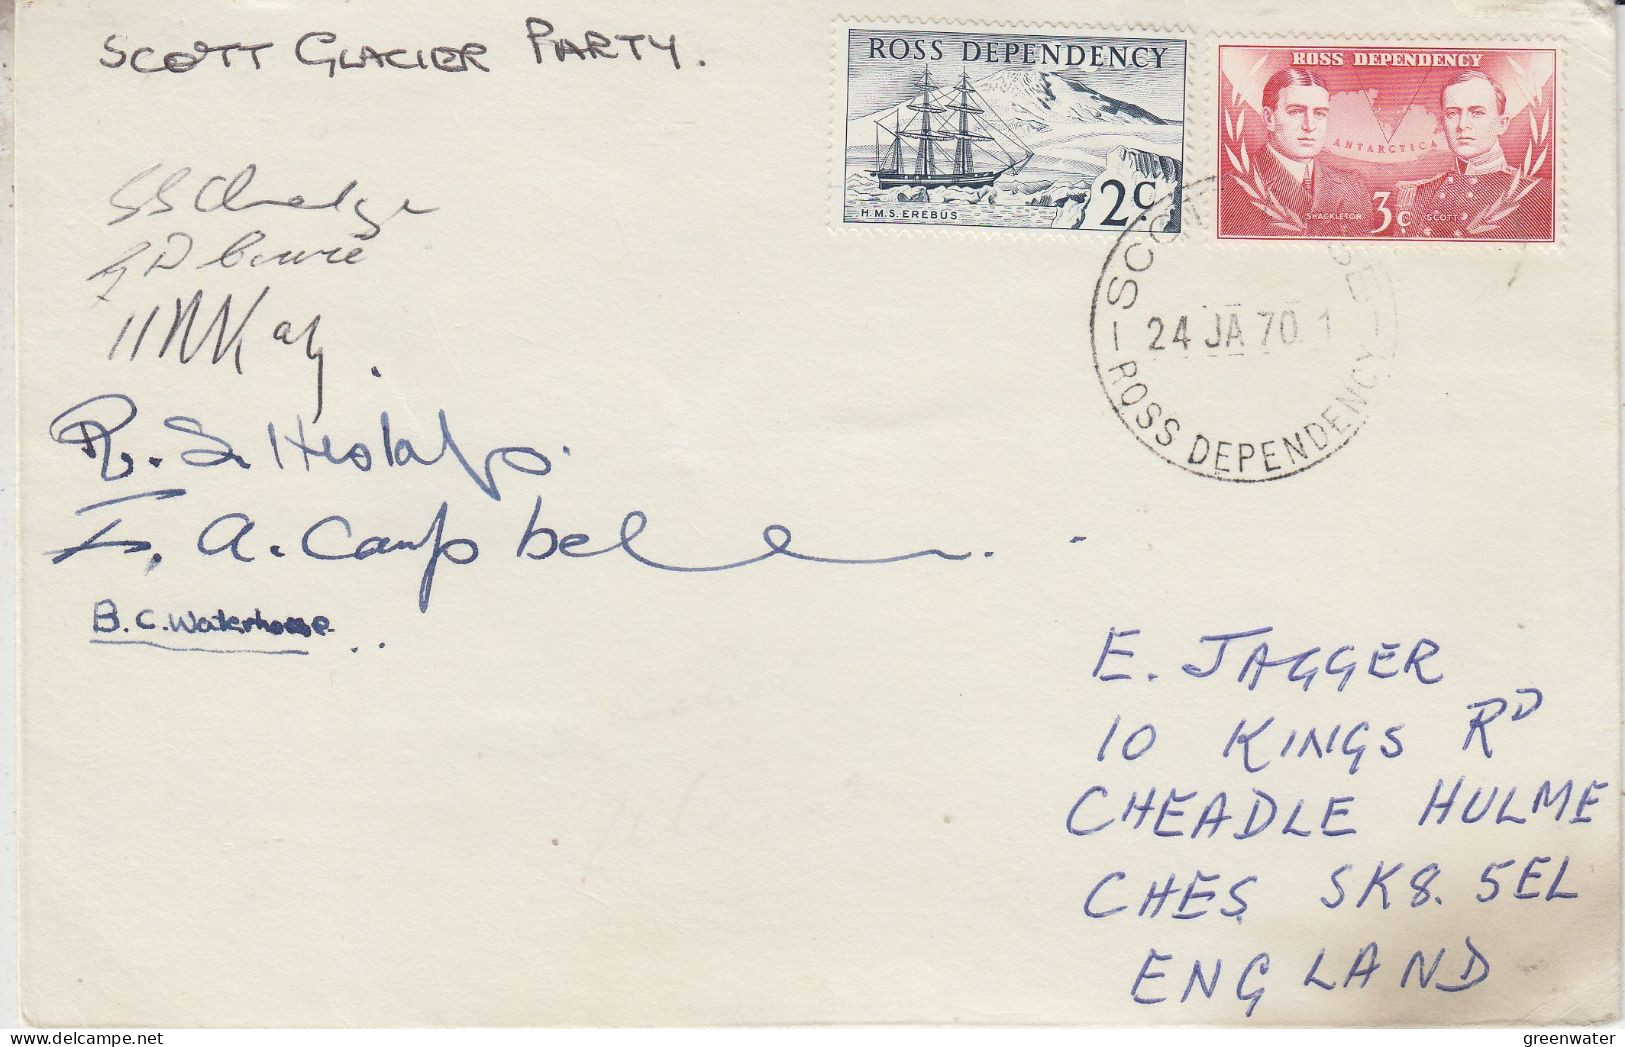 SCOTT GLACIER PARTY.
ROSS DEPENDENCY
H.M.S. EREBUS
2c
ROSS DEPENDENCY
ANTARCTICA
SHACKLETON
3c
SCOTT
SCOTT BASE
24 JA 70 1
ROSS DEPENDENCY
R. S.
A. Campbell
B. C. Waterhouse
E. JAGGER
10 KINGS RD
CHEADLE HULME
CHES SK8. 5EL
ENGLAND
greenwater
delcampe.net